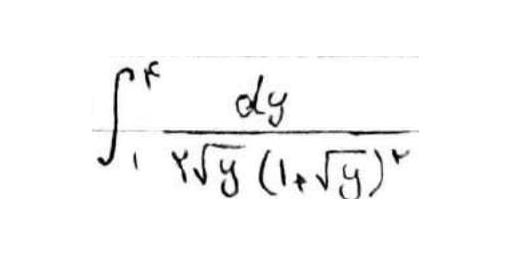 ∫₁^۴ dy / ۲√y (۱+√y)^۲